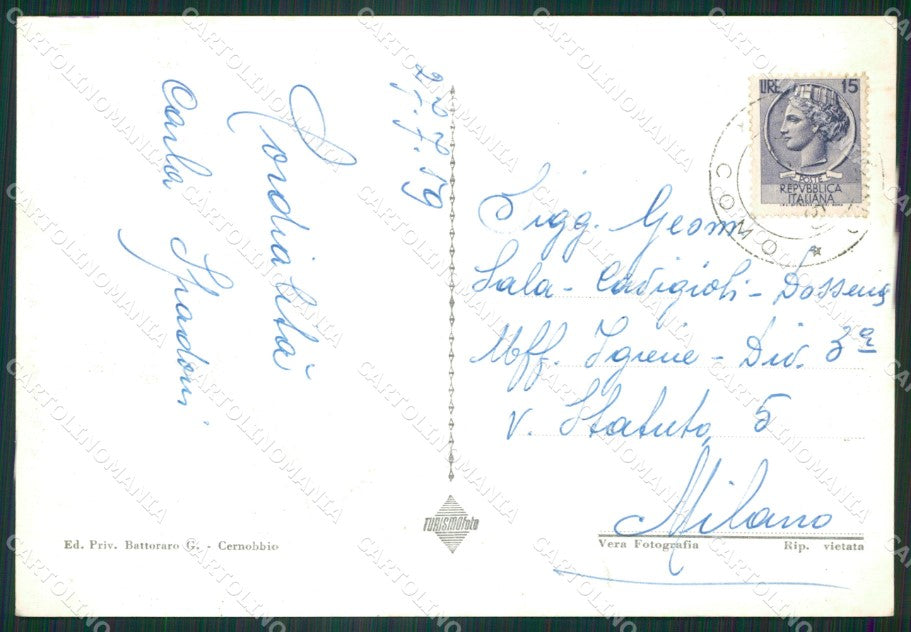 27.7.59
Cordialità
Carla Spadoni
Sigg. Geom.
Sala - Cadigioli - Dossena
Uff. Igiene - Div. 3ª
V. Statuto, 5
Milano
LIRE 15
POSTE
REPVBBLICA
ITALIANA
COMO
TURISMOfoto
Ed. Priv. Battoraro G. - Cernobbio
Vera Fotografia Rip. vietata
CARTOLINOMANIA